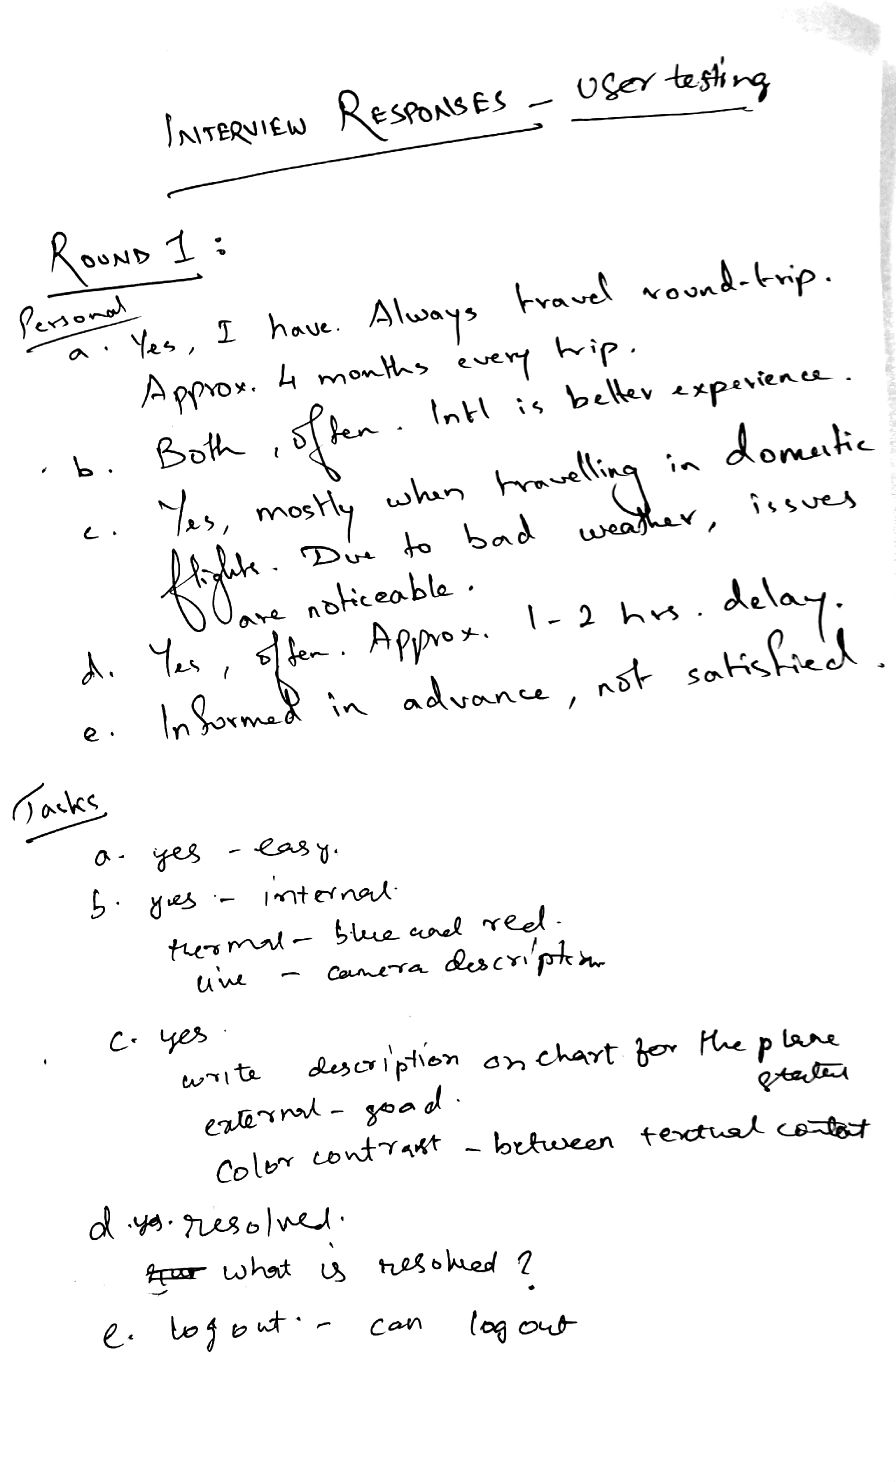 INTERVIEW RESPONSES - User testing
ROUND 1 :
Personal
a. Yes, I have. Always travel round-trip.
Approx. 4 months every trip.
b. Both, often. Intl is better experience.
c. Yes, mostly when travelling in domestic
flights. Due to bad weather, issues
are noticeable.
d. Yes, often. Approx. 1-2 hrs. delay.
e. Informed in advance, not satisfied.
Tasks
a. yes - easy.
b. yes - internal.
thermal - blue and red.
live - camera description
c. yes.
write description on chart for the plane
external - good.
Color contrast - between textual
d. yes. resolved.
what is resolved ?
e. logout. - can log out